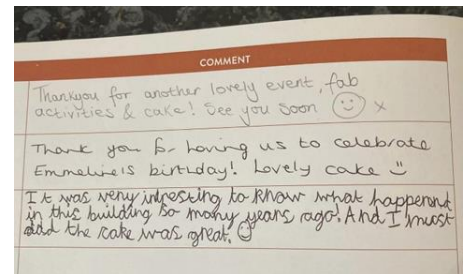 COMMENT
Thankyou for another lovely event, fab
activities & cake! See you soon ☺ x
Thank you for having us to celebrate
Emmeline's birthday! Lovely cake ☺
It was very intresting to know what happened
in this building so many years ago! And I must
add the cake was great. ☺